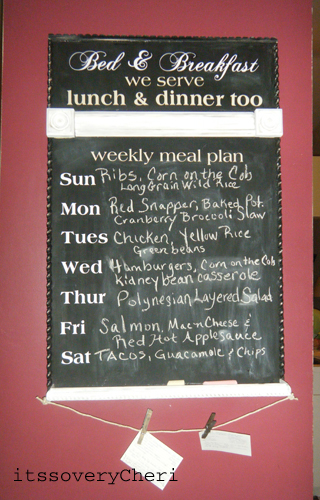 Bed & Breakfast
we serve
lunch & dinner too
weekly meal plan
Sun Ribs, Corn on the Cob
Long Grain Wild Rice
Mon Red Snapper, Baked Pot.
Cranberry Broccoli Slaw
Tues Chicken, Yellow Rice
Green beans
Wed Hamburgers, Corn on the Cob
Kidney bean casserole
Thur Polynesian Layered Salad
Fri Salmon, Mac n Cheese &
Red Hot Applesauce
Sat TACOS, Guacamole & Chips
itssoveryCheri